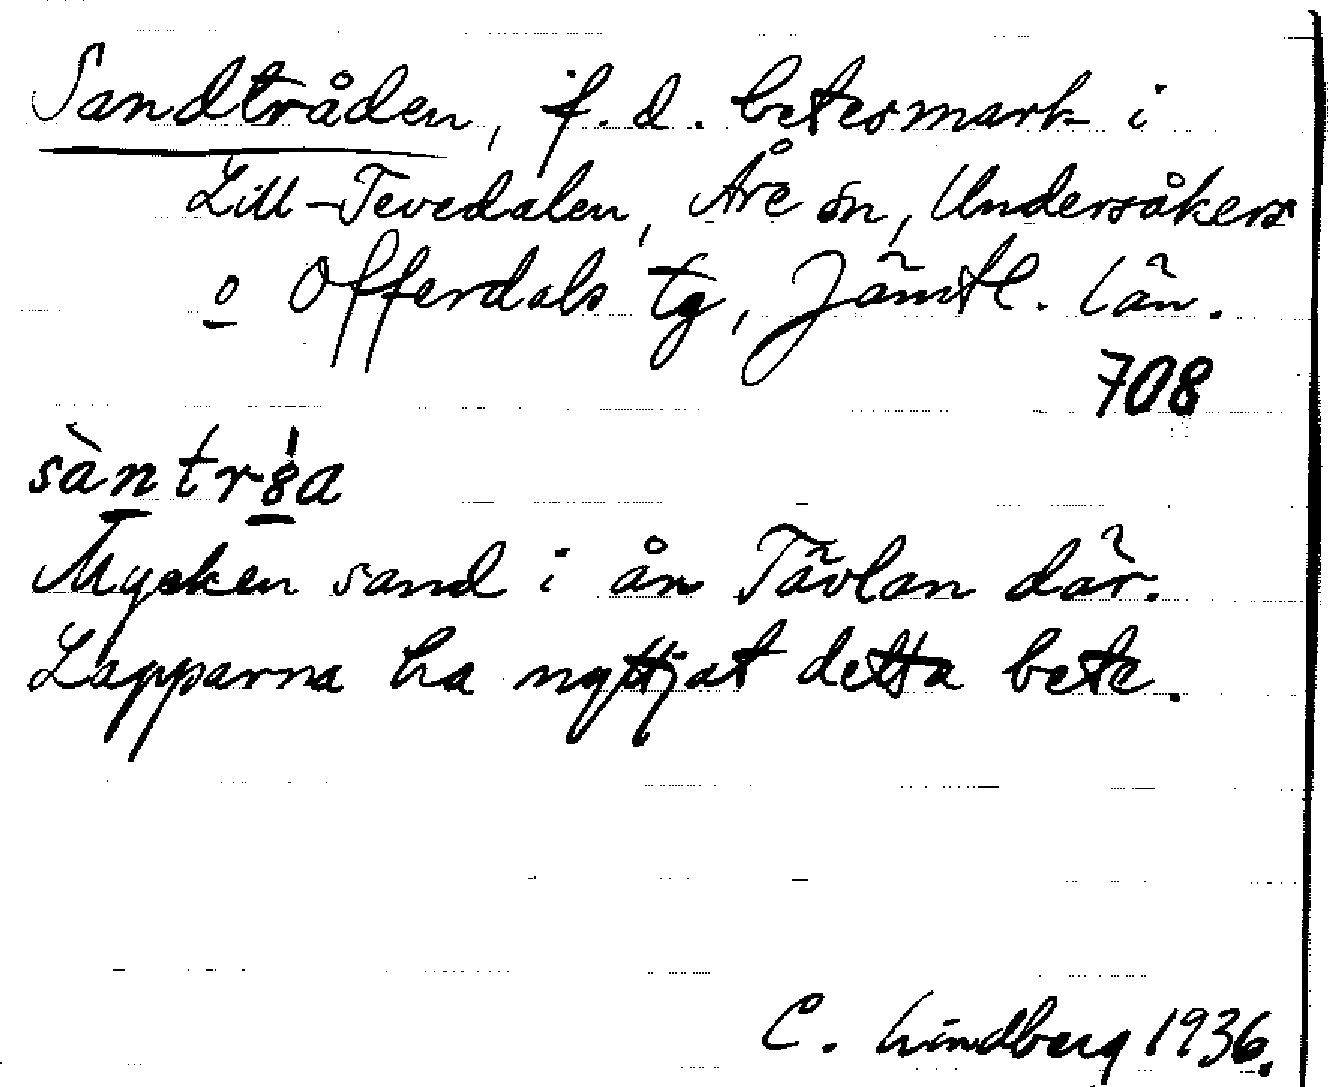 Sandtråden, f. d. betesmark i
Lill-Tevedalen, Åre sn, Undersåkers
o Offerdals tg, Jämtl. län.
708
Mycken sand i ån Tävlan där.
Lapparna ha nyttjat detta bete.
C. Lindberg 1936.